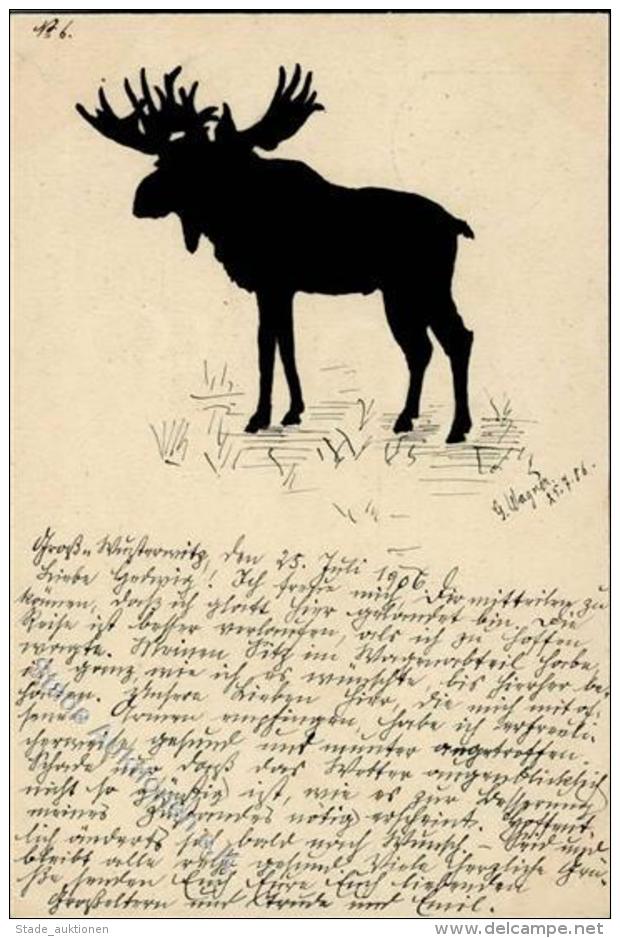 No 6.
G. Wagner
25.7.06.
Groß-Wusterwitz, den 25. Juli 1906
Liebe Hedwig! Ich freue mich, Dir mitteilen zu
können, daß ich glatt hier gelandet bin. Die
Reise ist besser verlaufen, als ich zu hoffen
wagte. Meinen Sitz im Wagenabteil habe,
ganz wie ich es wünschte, bis hierher be-
halten. Unsere Lieben hier, die mich mit of-
fenen Armen empfingen, habe ich erfreuli-
cherweise gesund und munter angetroffen.
Schade nur daß das Wetter augenblicklich
nicht so günstig ist, wie es zur Besserung
meines Zustandes nötig erscheint. Hoffent-
lich änderts sich bald nach Wunsch. – Seid und
bleibt alle recht gesund. Viele herzliche Grü-
ße senden Euch Eure Euch liebenden
Großeltern und Trude und Emil.
Stade Auktionen
Stade_auktionen
www.delcampe.net